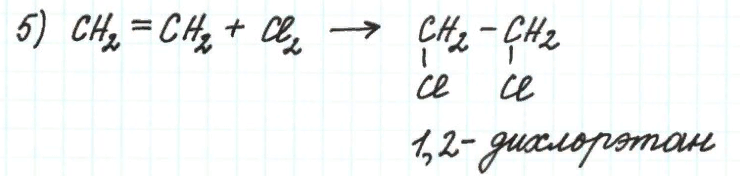 5) CH₂ = CH₂ + Cl₂ → CH₂ - CH₂
Cl Cl
1,2- дихлорэтан